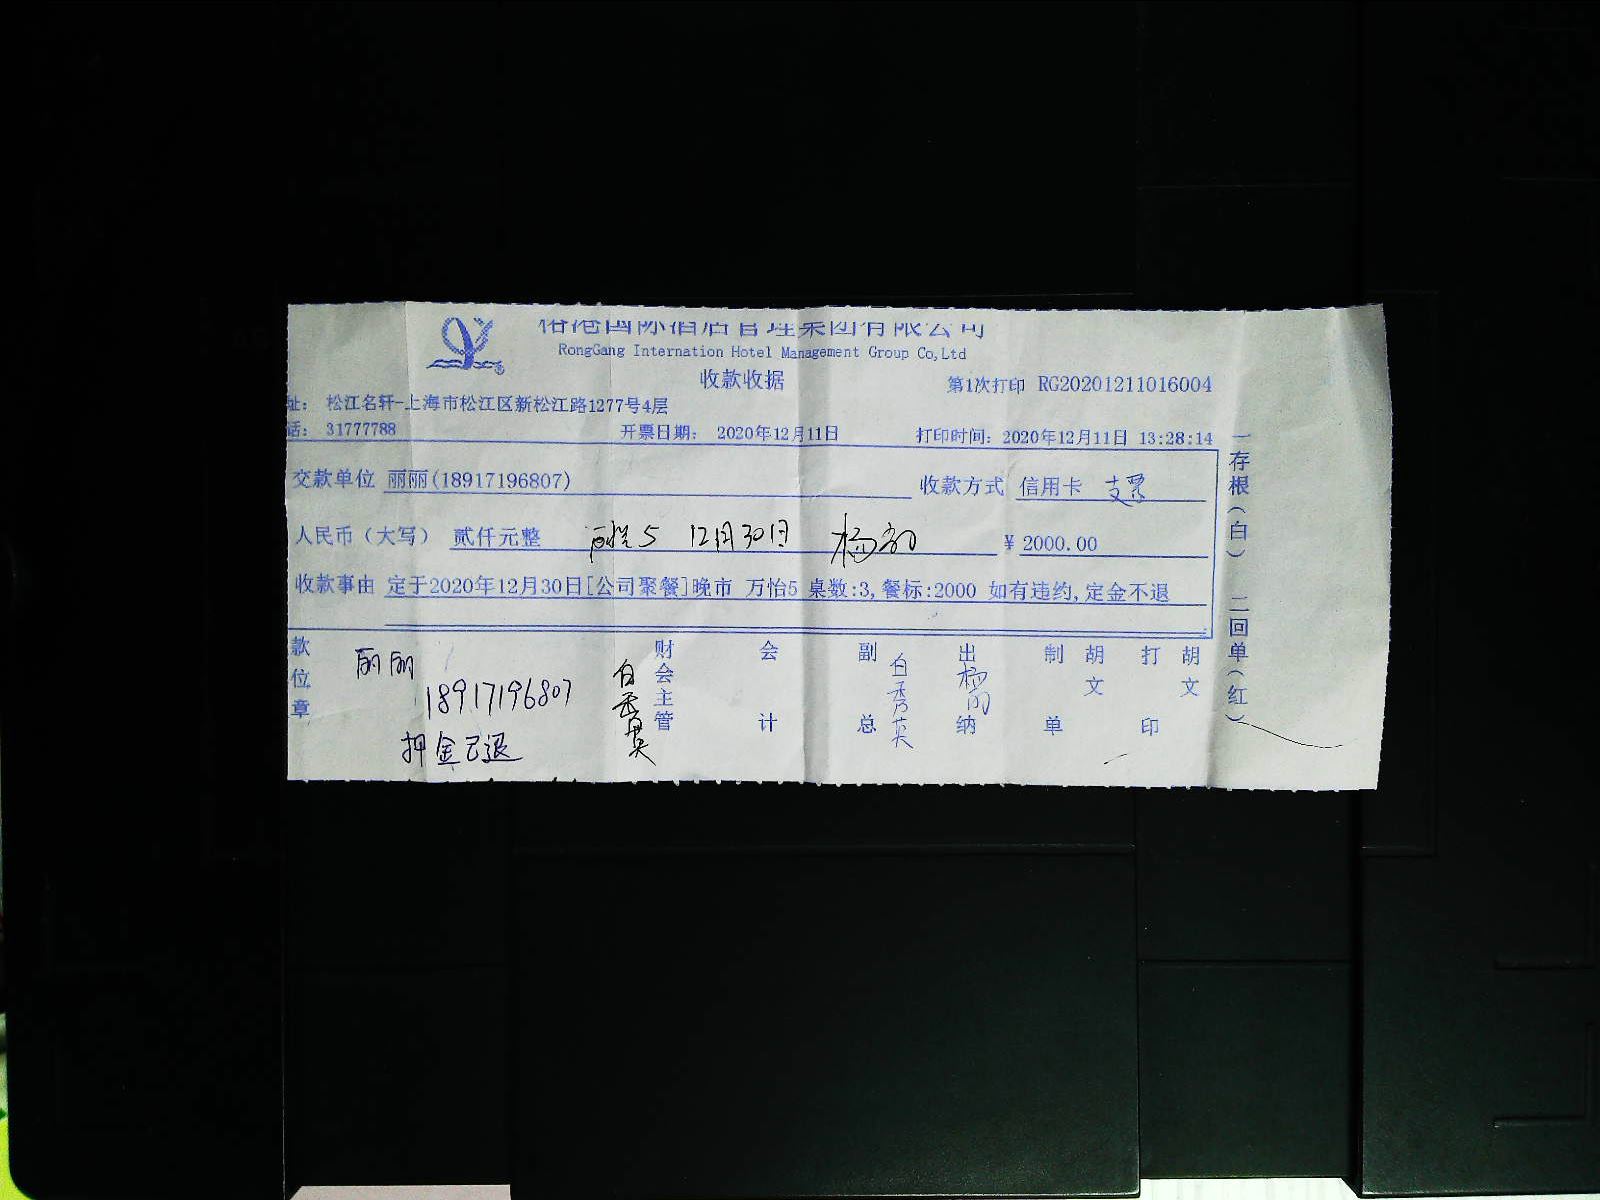 榕港国际酒店管理集团有限公司
RongGang Internation Hotel Management Group Co,Ltd
收款收据
第1次打印 RG20201211016004
址： 松江名轩-上海市松江区新松江路1277号4层
话： 31777788 开票日期： 2020年12月11日 打印时间：2020年12月11日 13:28:14
交款单位 丽丽(18917196807) 收款方式 信用卡 支票
人民币（大写） 贰仟元整 5 12月30日 ¥ 2000.00
收款事由 定于2020年12月30日[公司聚餐]晚市 万怡5 桌数:3,餐标:2000 如有违约,定金不退
款位章
丽丽
18917196807
押金已退
财会主管
会计
副总 白秀英
出纳
制单 胡文
打印 胡文
一存根(白) 二回单(红)